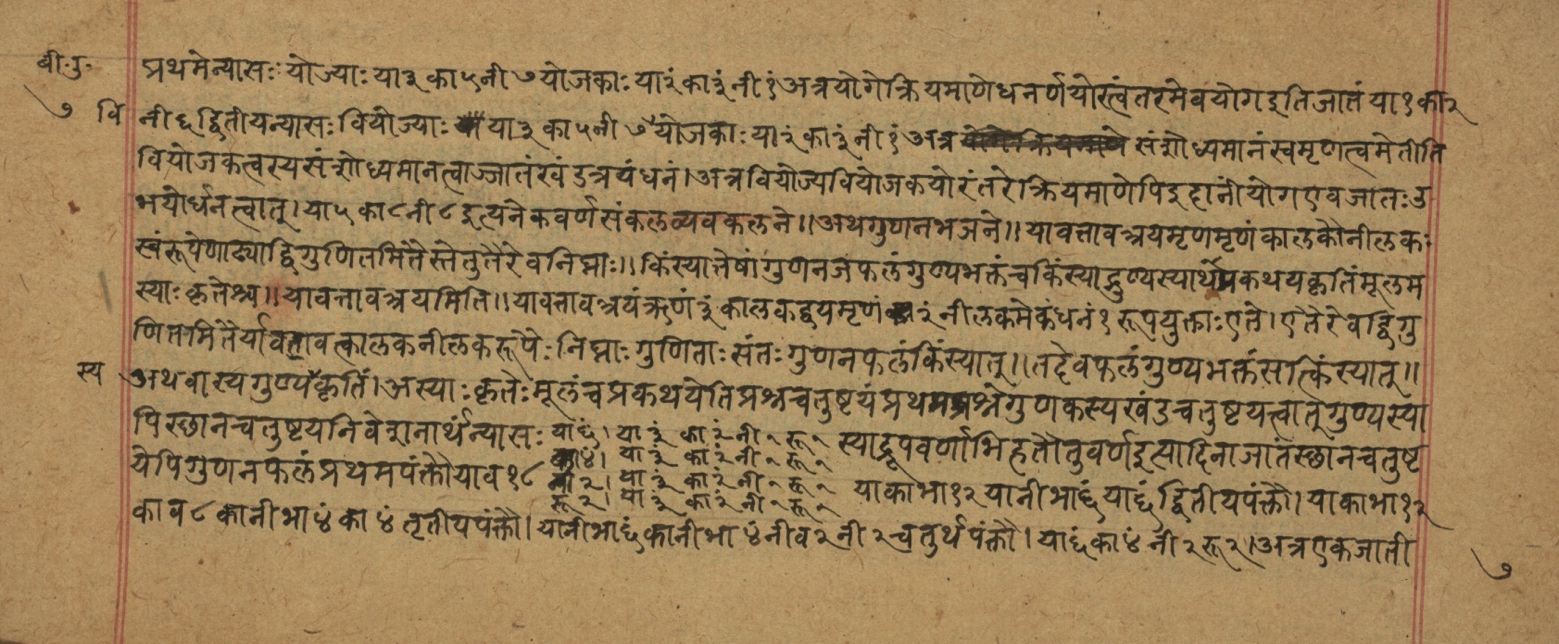 बी.गु.
प्रथमेन्यासः योज्याः या३ का५ नी ७ योजकाः या२ं का३ं नी १ं अत्रयोगेक्रियमाणेधनर्णयोरत्वंतरमेवयोगइतिजातं या१ का२
७ वि नी६ द्वितीयन्यासः वियोज्याः या३ का५ नी ७ योजकाः या२ं का३ं नी १ं अत्र योगेक्रियमाणे संशोध्यमानंस्वमृणत्वमेतीति
वियोजकत्वस्यसंशोध्यमानत्वाज्जातंखंडत्रयंधनं। अत्रवियोज्यवियोजकयोरंतरेक्रियमाणेपिइदानींयोगएवजातः उ
भयोर्धनत्वात्। या५ का८ नी८ इत्यनेकवर्णसंकलव्यवकलने॥ अथगुणनभजने॥ यावत्तावत्त्रयमृणमृणंकालकौनीलकः
स्वंरूपेणाढ्याद्विगुणितमितैस्तैतुतैरेवनिघ्नाः॥ किंस्यात्तेषांगुणनजफलंगुण्यभक्तंचकिंस्याद्गुण्यस्यार्थेप्रकथयकृतिंमूलम
स्याः कृतेश्च॥ यावत्तावत्त्रयमिति॥ यावत्तावत्त्रयंऋणं३ं कालकद्वयमृणं २ं नीलकमेकंधनं १ रूपयुक्ताः एते। एतैरेवद्विगु
णितमितैर्यावत्तावत्कालकनीलकरूपैः निघ्नाः गुणिताः संतः गुणनफलंकिंस्यात्॥ तदेवफलंगुण्यभक्तंसत्किंस्यात्॥
स्य अथवास्यगुण्यकृतिं। अस्याः कृतेः मूलंचप्रकथयेतिप्रश्नचतुष्टयंप्रथमप्रश्नेगुणकस्यखंडचतुष्टयत्वात्गुण्यस्या
पिस्छानचतुष्टयनिवेशनार्थंन्यासः या६ं। या३ं का२ं नी१ रू१ स्याद्रूपवर्णाभिहतौतुवर्णइत्यादिनाजातंस्छानचतुष्ट
का४ं। या३ं का२ं नी१ रू१
येपिगुणनफलंप्रथमपंक्तौयाव१८ नी२। या३ं का२ं नी१ रू१ याकाभा१२ यानीभा६ं या६ं द्वितीयपंक्तौ। याकाभा१२
रू२। या३ं का२ं नी१ रू१
काव८ कानीभा४ं का४ं तृतीयपंक्तौ। यानीभा६ं कानीभा४ं नीव२ नी२ चतुर्थपंक्तौ। या६ं का४ं नी२ रू२। अत्रएकजाती
७